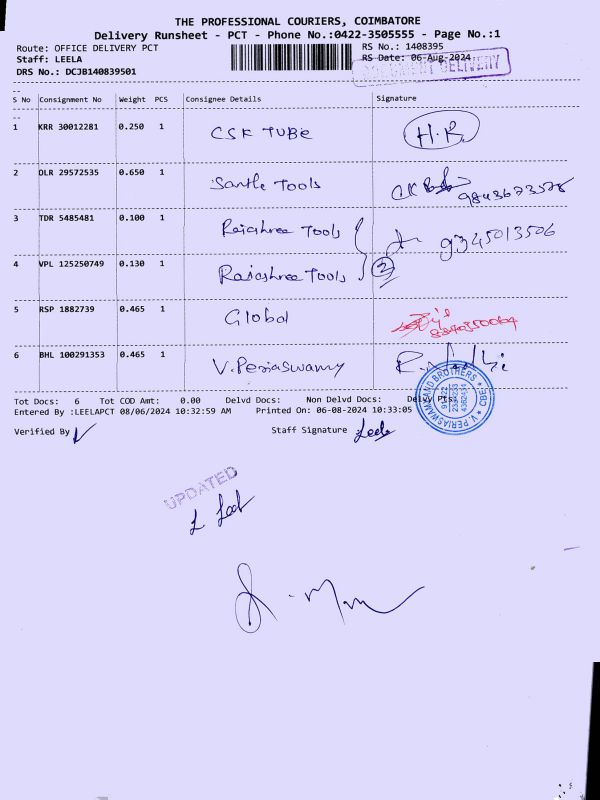 THE PROFESSIONAL COURIERS, COIMBATORE
Delivery Runsheet - PCT - Phone No.:0422-3505555 - Page No.:1
Route: OFFICE DELIVERY PCT
RS No.: 1408395
Staff: LEELA
RS Date: 06-Aug-2024
DRS No.: DCJB140839501
DOCUMENT DELIVERY
S No Consignment No Weight PCS Consignee Details Signature
1 KRR 30012281 0.250 1 CSK TUBE H.R.
2 DLR 29572535 0.650 1 Santhe Tools
3 TDR 5485481 0.100 1 Rajashree Tools 9345013506
4 VPL 125250749 0.130 1 Rajashree Tools 2
5 RSP 1882739 0.465 1 Global
6 BHL 100291353 0.465 1 V. Periaswamy
Tot Docs: 6 Tot COD Amt: 0.00 Delvd Docs: Non Delvd Docs: Delvy Pts:
Entered By :LEELAPCT 08/06/2024 10:32:59 AM Printed On: 06-08-2024 10:33:05
Verified By Staff Signature Leela
V. PERIASWAMY AND BROTHERS CBE
UPDATED